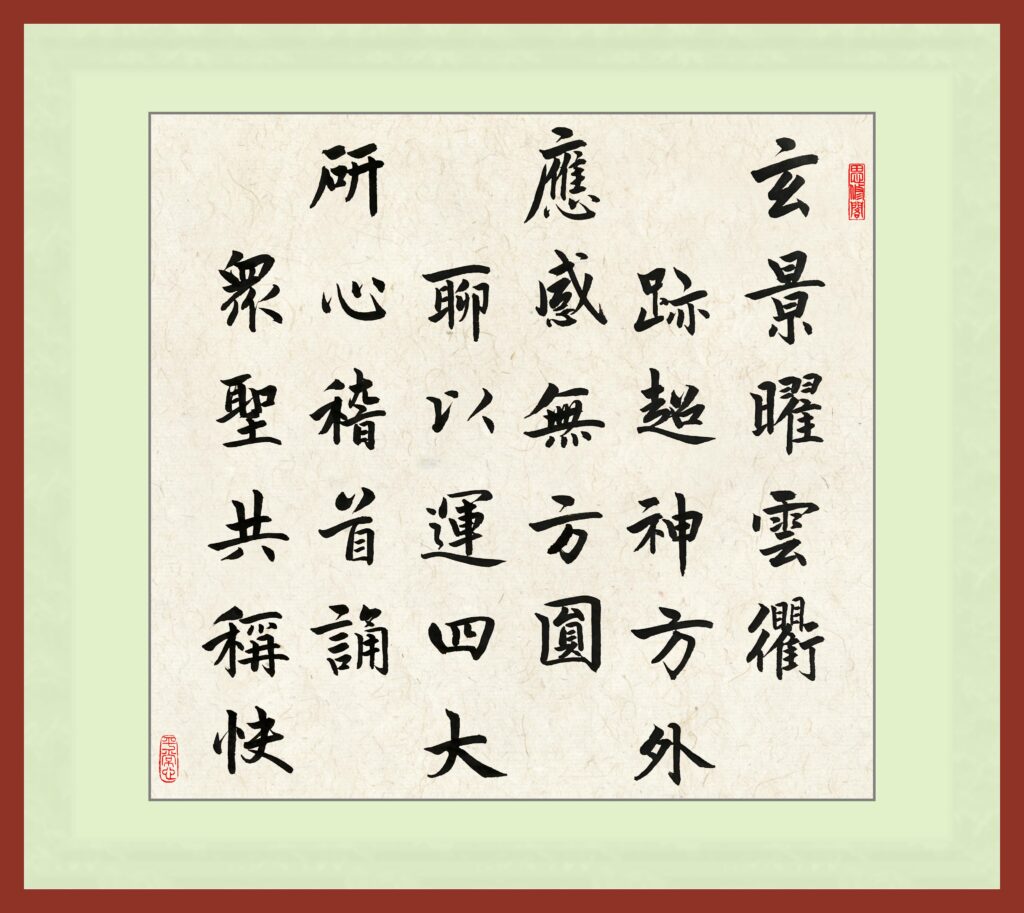 玄景曜雲衢
跡超神方外
應感無方圓
聊以運四大
研心稽首誦
衆聖共稱快
思微閣
平常心